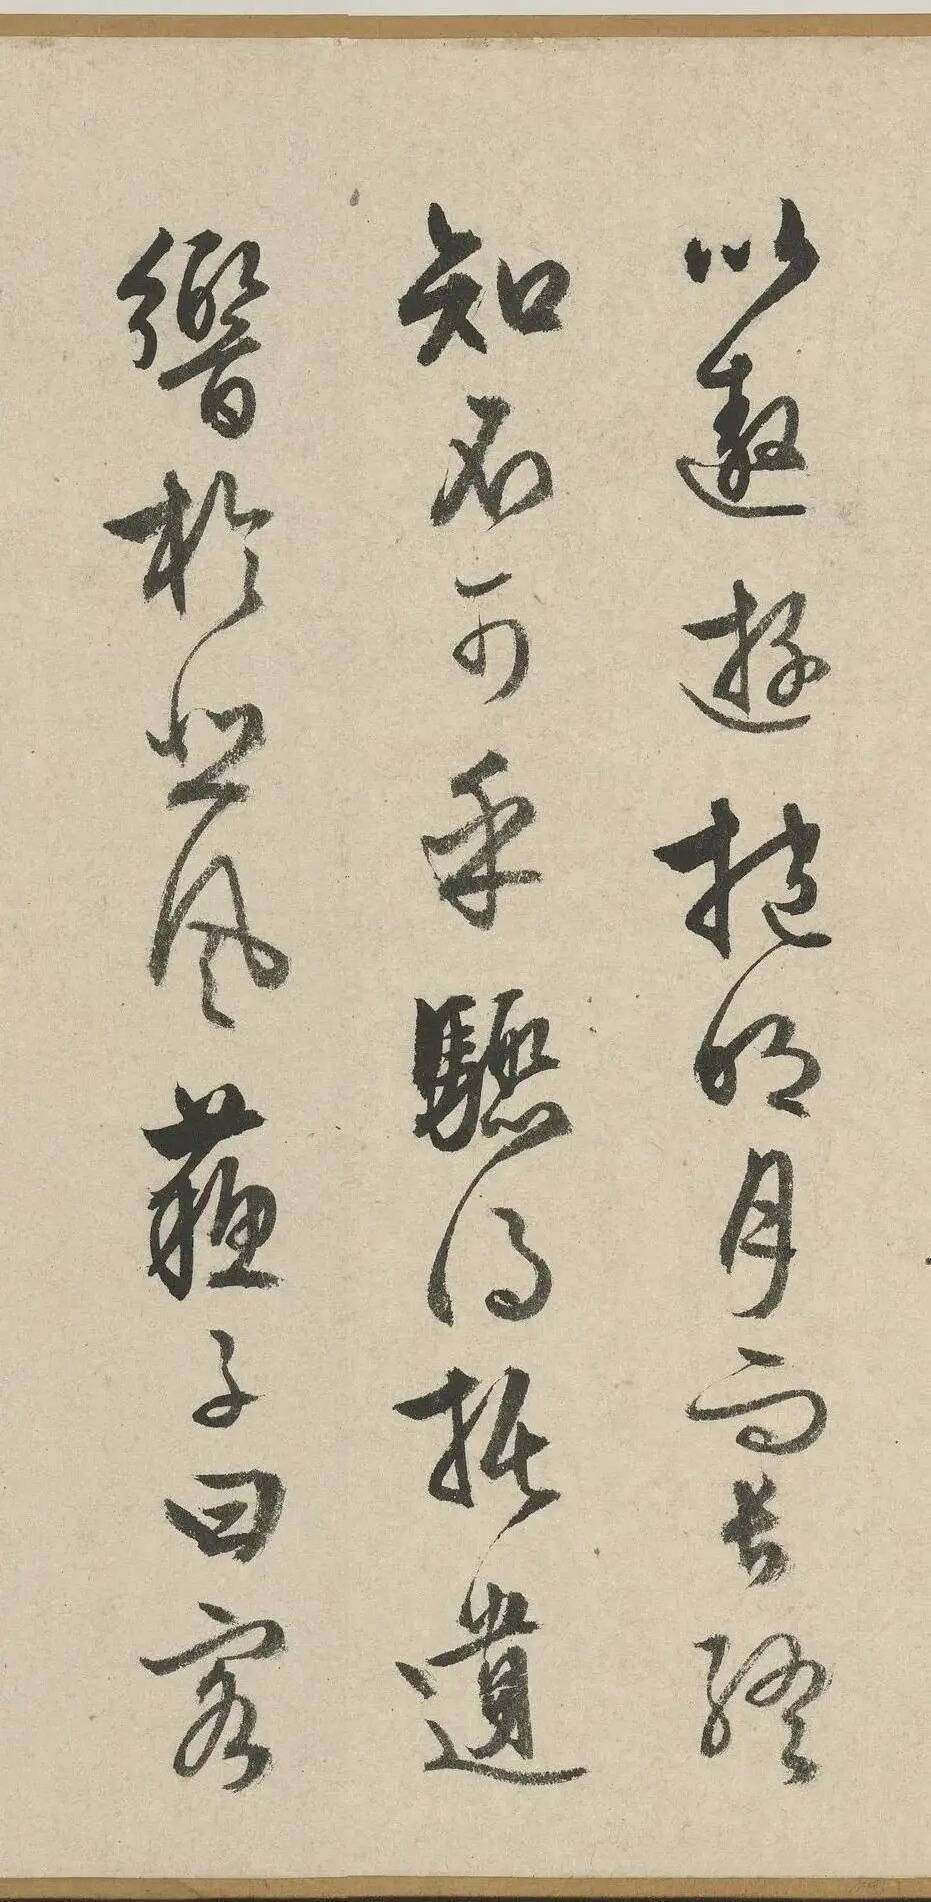 以遨遊抱明月而長終
知不可乎驟得托遺
響於悲風蘇子曰客